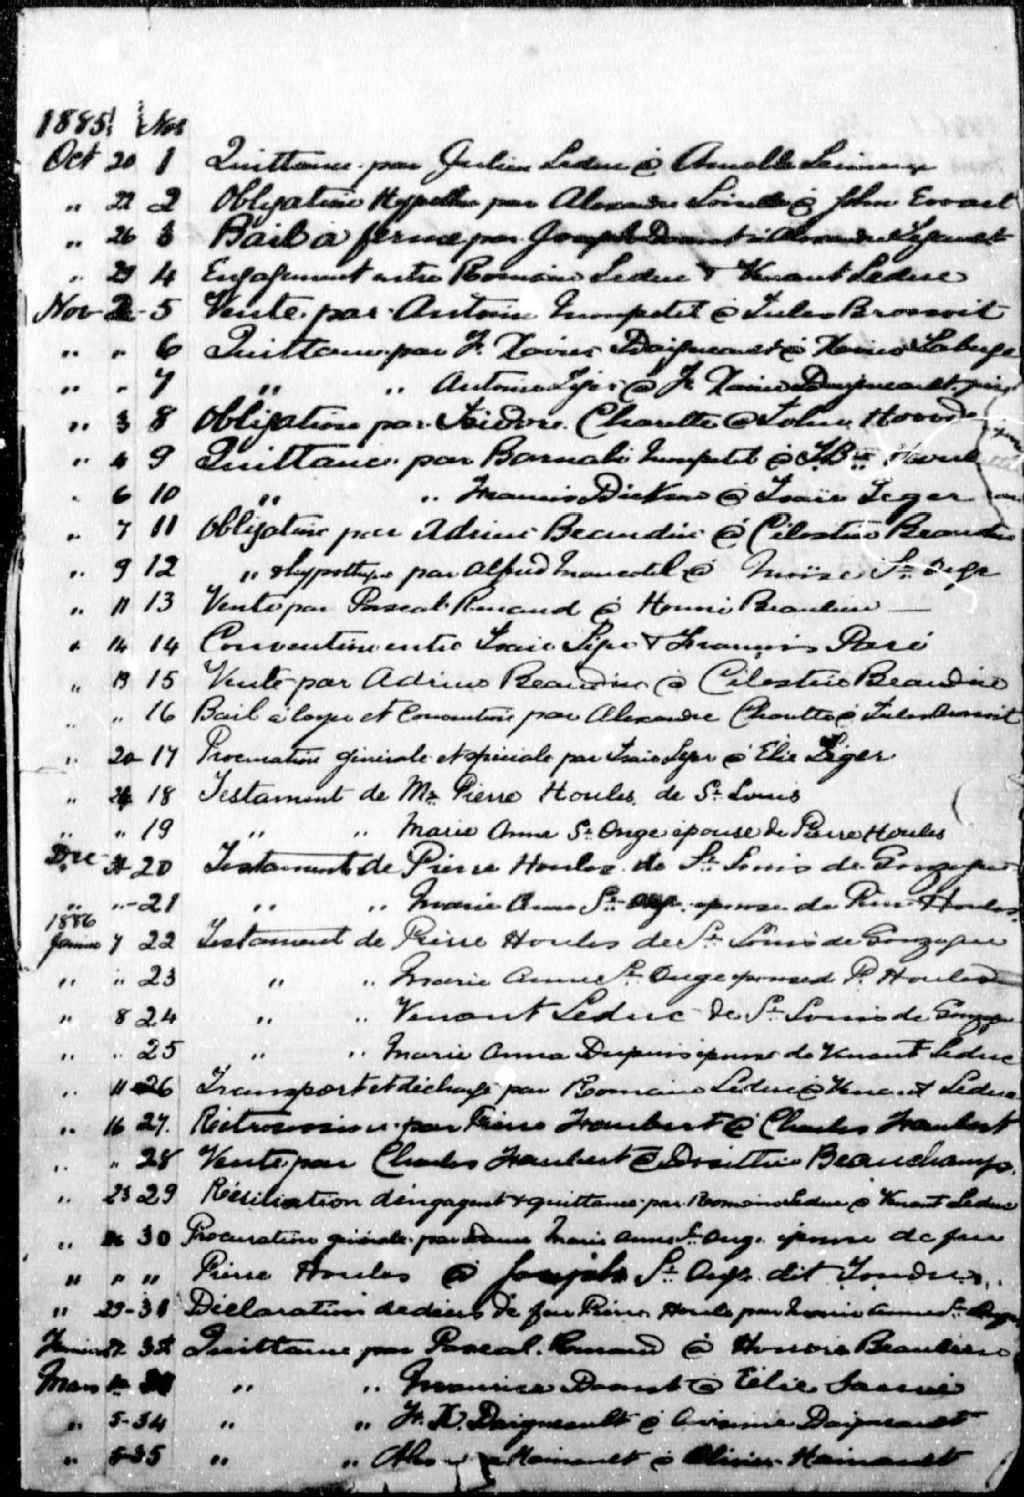 1885 Nos
Oct 20 1 Quittance par Julien Leduc @ Armelle
" 22 2 Obligation Hypothe par Alexandre Loiselle @ John Ewart
" 26 3 Bail à ferme par Joseph Daoust à Alexandre Legault
" 29 4 Engagement entre Romain Leduc & Venant Leduc
Nov 2 5 Vente par Antoine @ Jules Bronsoit
" " 6 Quittance par F. Xavier Daigneault @ Xavier Laberge
" " 7 " " Antoine Léger @ F. Xavier Daigneault
" 3 8 Obligation par Isidore Charette @ John
" 4 9 Quittance par Barnabé @ J. Bte Houle
" 6 10 " " Francis Dickens @ Isaïe Leger
" 7 11 Obligation par Adrien Beaudin @ Célestin Beaudin
" 9 12 " & hypothèque par Alfred @ Moïse St Onge
" 11 13 Vente par Pascal Renaud @ Honoré Beaulieu
" 14 14 Convention entre Isaïe Léger & François Paré
" 19 15 Vente par Adrien Beaudin @ Célestin Beaudin
" " 16 Bail à loyer et Convention par Alexandre Charette @ Jules
" 20 17 Procuration générale et spéciale par Isaïe Léger @ Élie Léger
" 24 18 Testament de Mr. Pierre Houles de St. Louis
" " 19 " " Marie Anne St. Onge épouse de Pierre Houles
Dec 20 Testament de Pierre Houles de St. Louis de Gonzague
" " 21 " " Marie Anne St. Onge épouse de Pierre Houles
1886
Janvier 7 22 Testament de Pierre Houles de St. Louis de Gonzague
" " 23 " " Marie Anne St. Onge épouse d P. Houles
" 8 24 " " Venant Leduc de St. Louis de Gonzague
" " 25 " " Marie Anna Dupuis épouse de Venant Leduc
" 11 26 Transport et décharge par Romain Leduc @ Venant Leduc
" 16 27 Rétrocession par Pierre Haubert @ Charles Haubert
" " 28 Vente par Charles Haubert @ Dosithée Beauchamp
" 23 29 Résiliation d'engagent & quittance par Romain Leduc @ Venant Leduc
" 26 30 Procuration générale par Dame Marie Anne St. Onge épouse de feu
" " " Pierre Houles @ Joseph St. Onge dit
" 29 31 Déclaration de décès de feu Pierre Houle par Marie Anne St. Onge
32 Quittance par Pascal Renaud @ Honoré Beaulieu
Mars " " Maurice Daoust @ Élie
" 5 34 " " F. X. Daigneault @ Daigneault
" 5 35 " " Hainault @ Olivier Hainault